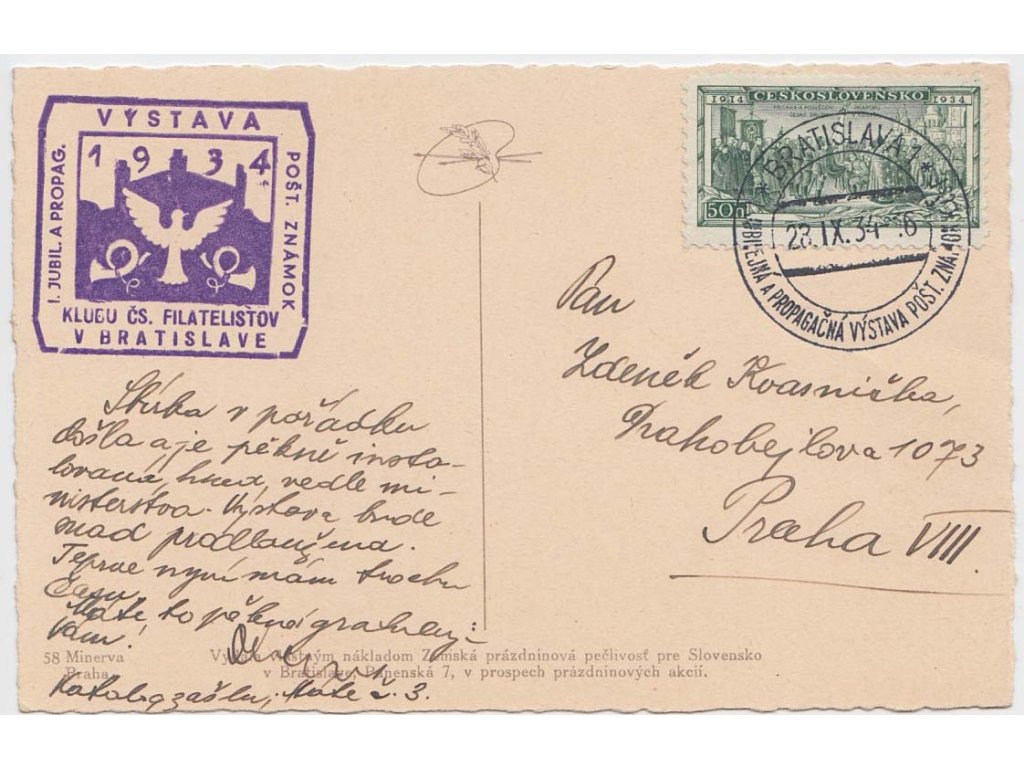 VÝSTAVA
1934
I. JUBIL. A PROPAG.
POŠT. ZNÁMOK
KLUBU ČS. FILATELISTOV
V BRATISLAVE
1914 ČESKOSLOVENSKO 1934
50h
* BRATISLAVA 1 *
23.IX.34
JUBILEJNÁ A PROPAGAČNÁ VÝSTAVA POŠT. ZNÁMOK
Pan
Zdeněk Kvasnička,
Drahobejlova 1073
Praha VIII.
Sbírka v pořádku
došla a je pěkně insta-
lovaná, hned, vedle mi-
nisterstva. Výstava bude
snad prodloužena.
Teprve nyní mám trochu
času.
Máte to pěkné
Vám!
58 Minerva
Praha
Vydala vlastným nákladom Zemská prázdninová pečlivosť pre Slovensko
v Bratislave, Panenská 7, v prospech prázdninových akcií.
Katalog zašlu, Máte č. 3.